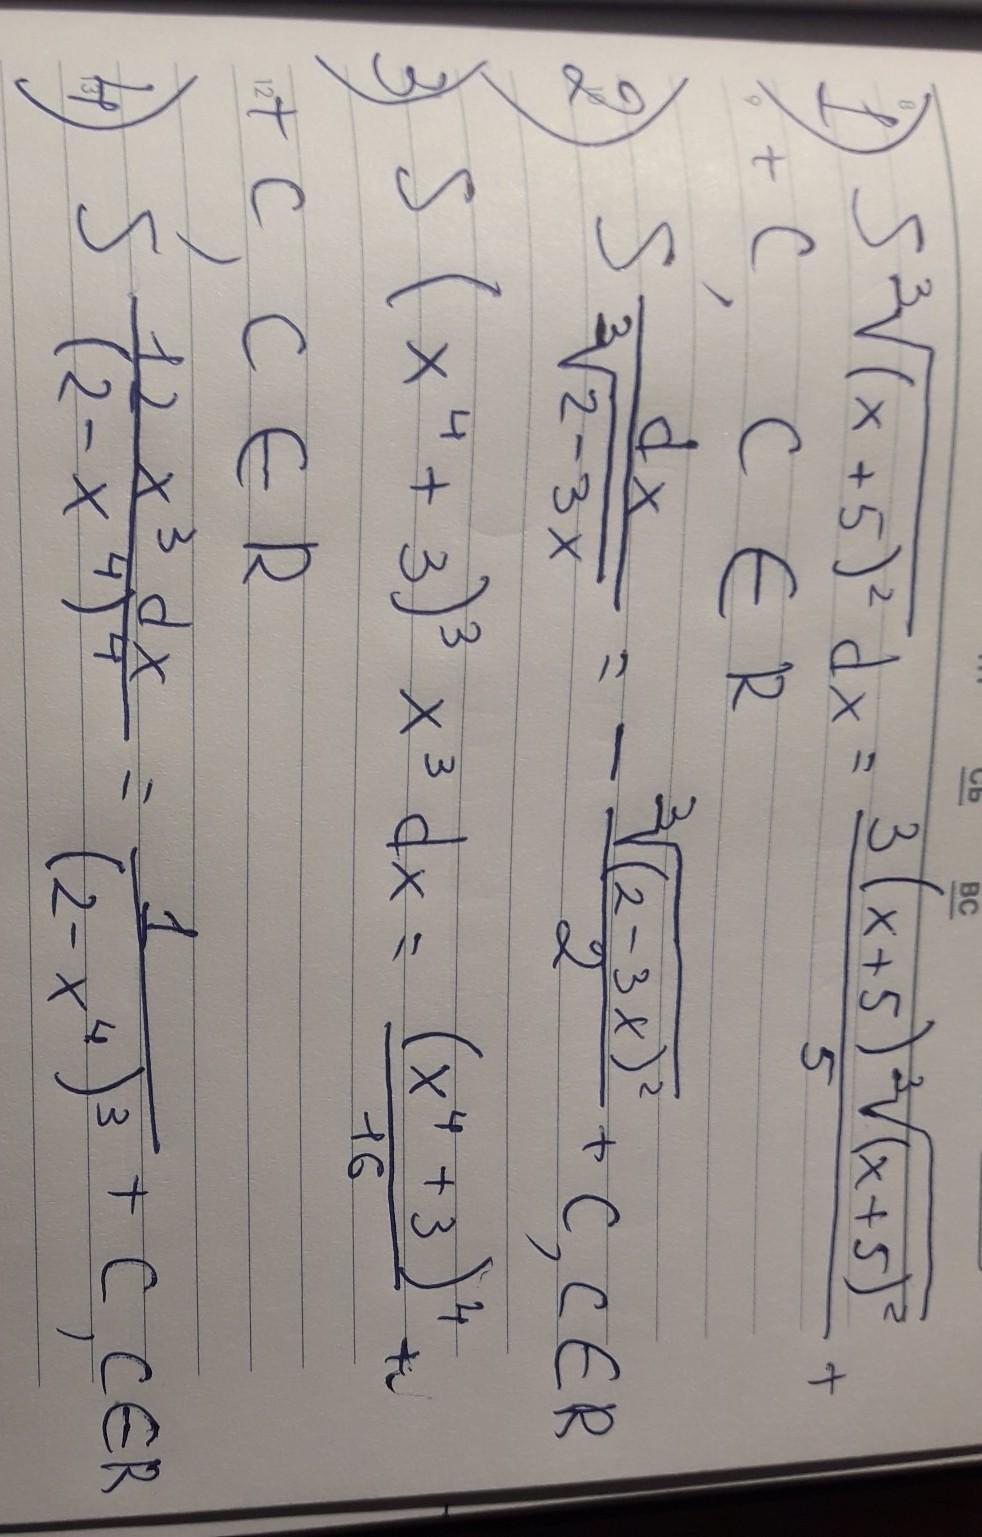 1) ∫ ∛(x+5)² dx = 3(x+5)∛(x+5)² / 5 +
+ C, C ∈ R
2) ∫ dx / ∛2-3x = - ∛(2-3x)² / 2 + C, C ∈ R
3) ∫ (x⁴ + 3)³ x³ dx = (x⁴ + 3)⁴ / 16 +
+ C, C ∈ R
4) ∫ 12 x³ dx / (2-x⁴)⁴ = 1 / (2-x⁴)³ + C, C ∈ R
СБ ВС
8
9
12
13